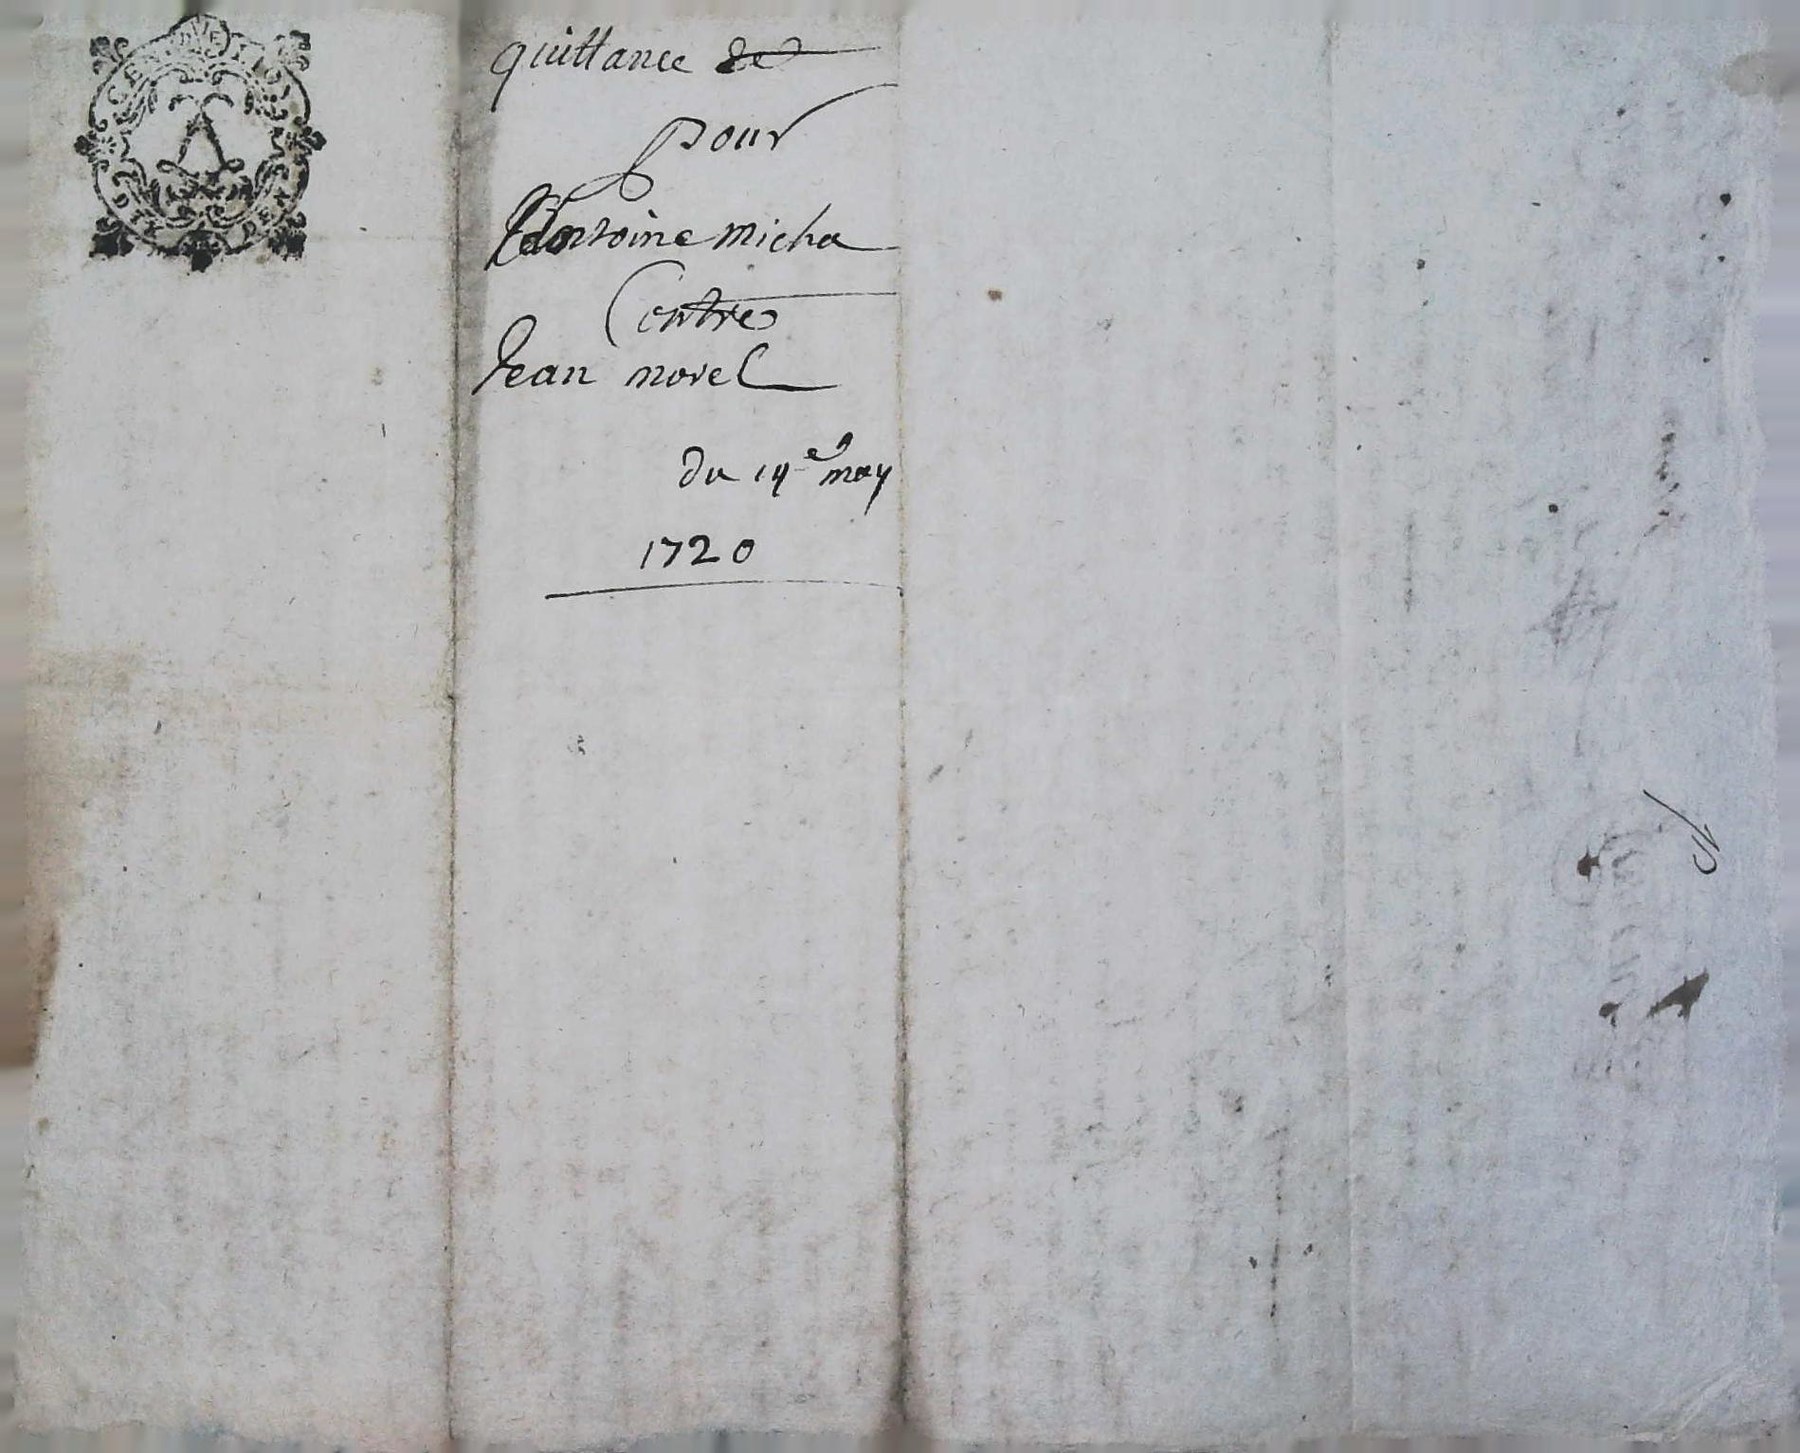 quittance de
pour
Antoine micha
Contre
Jean morel
du 14e may
1720